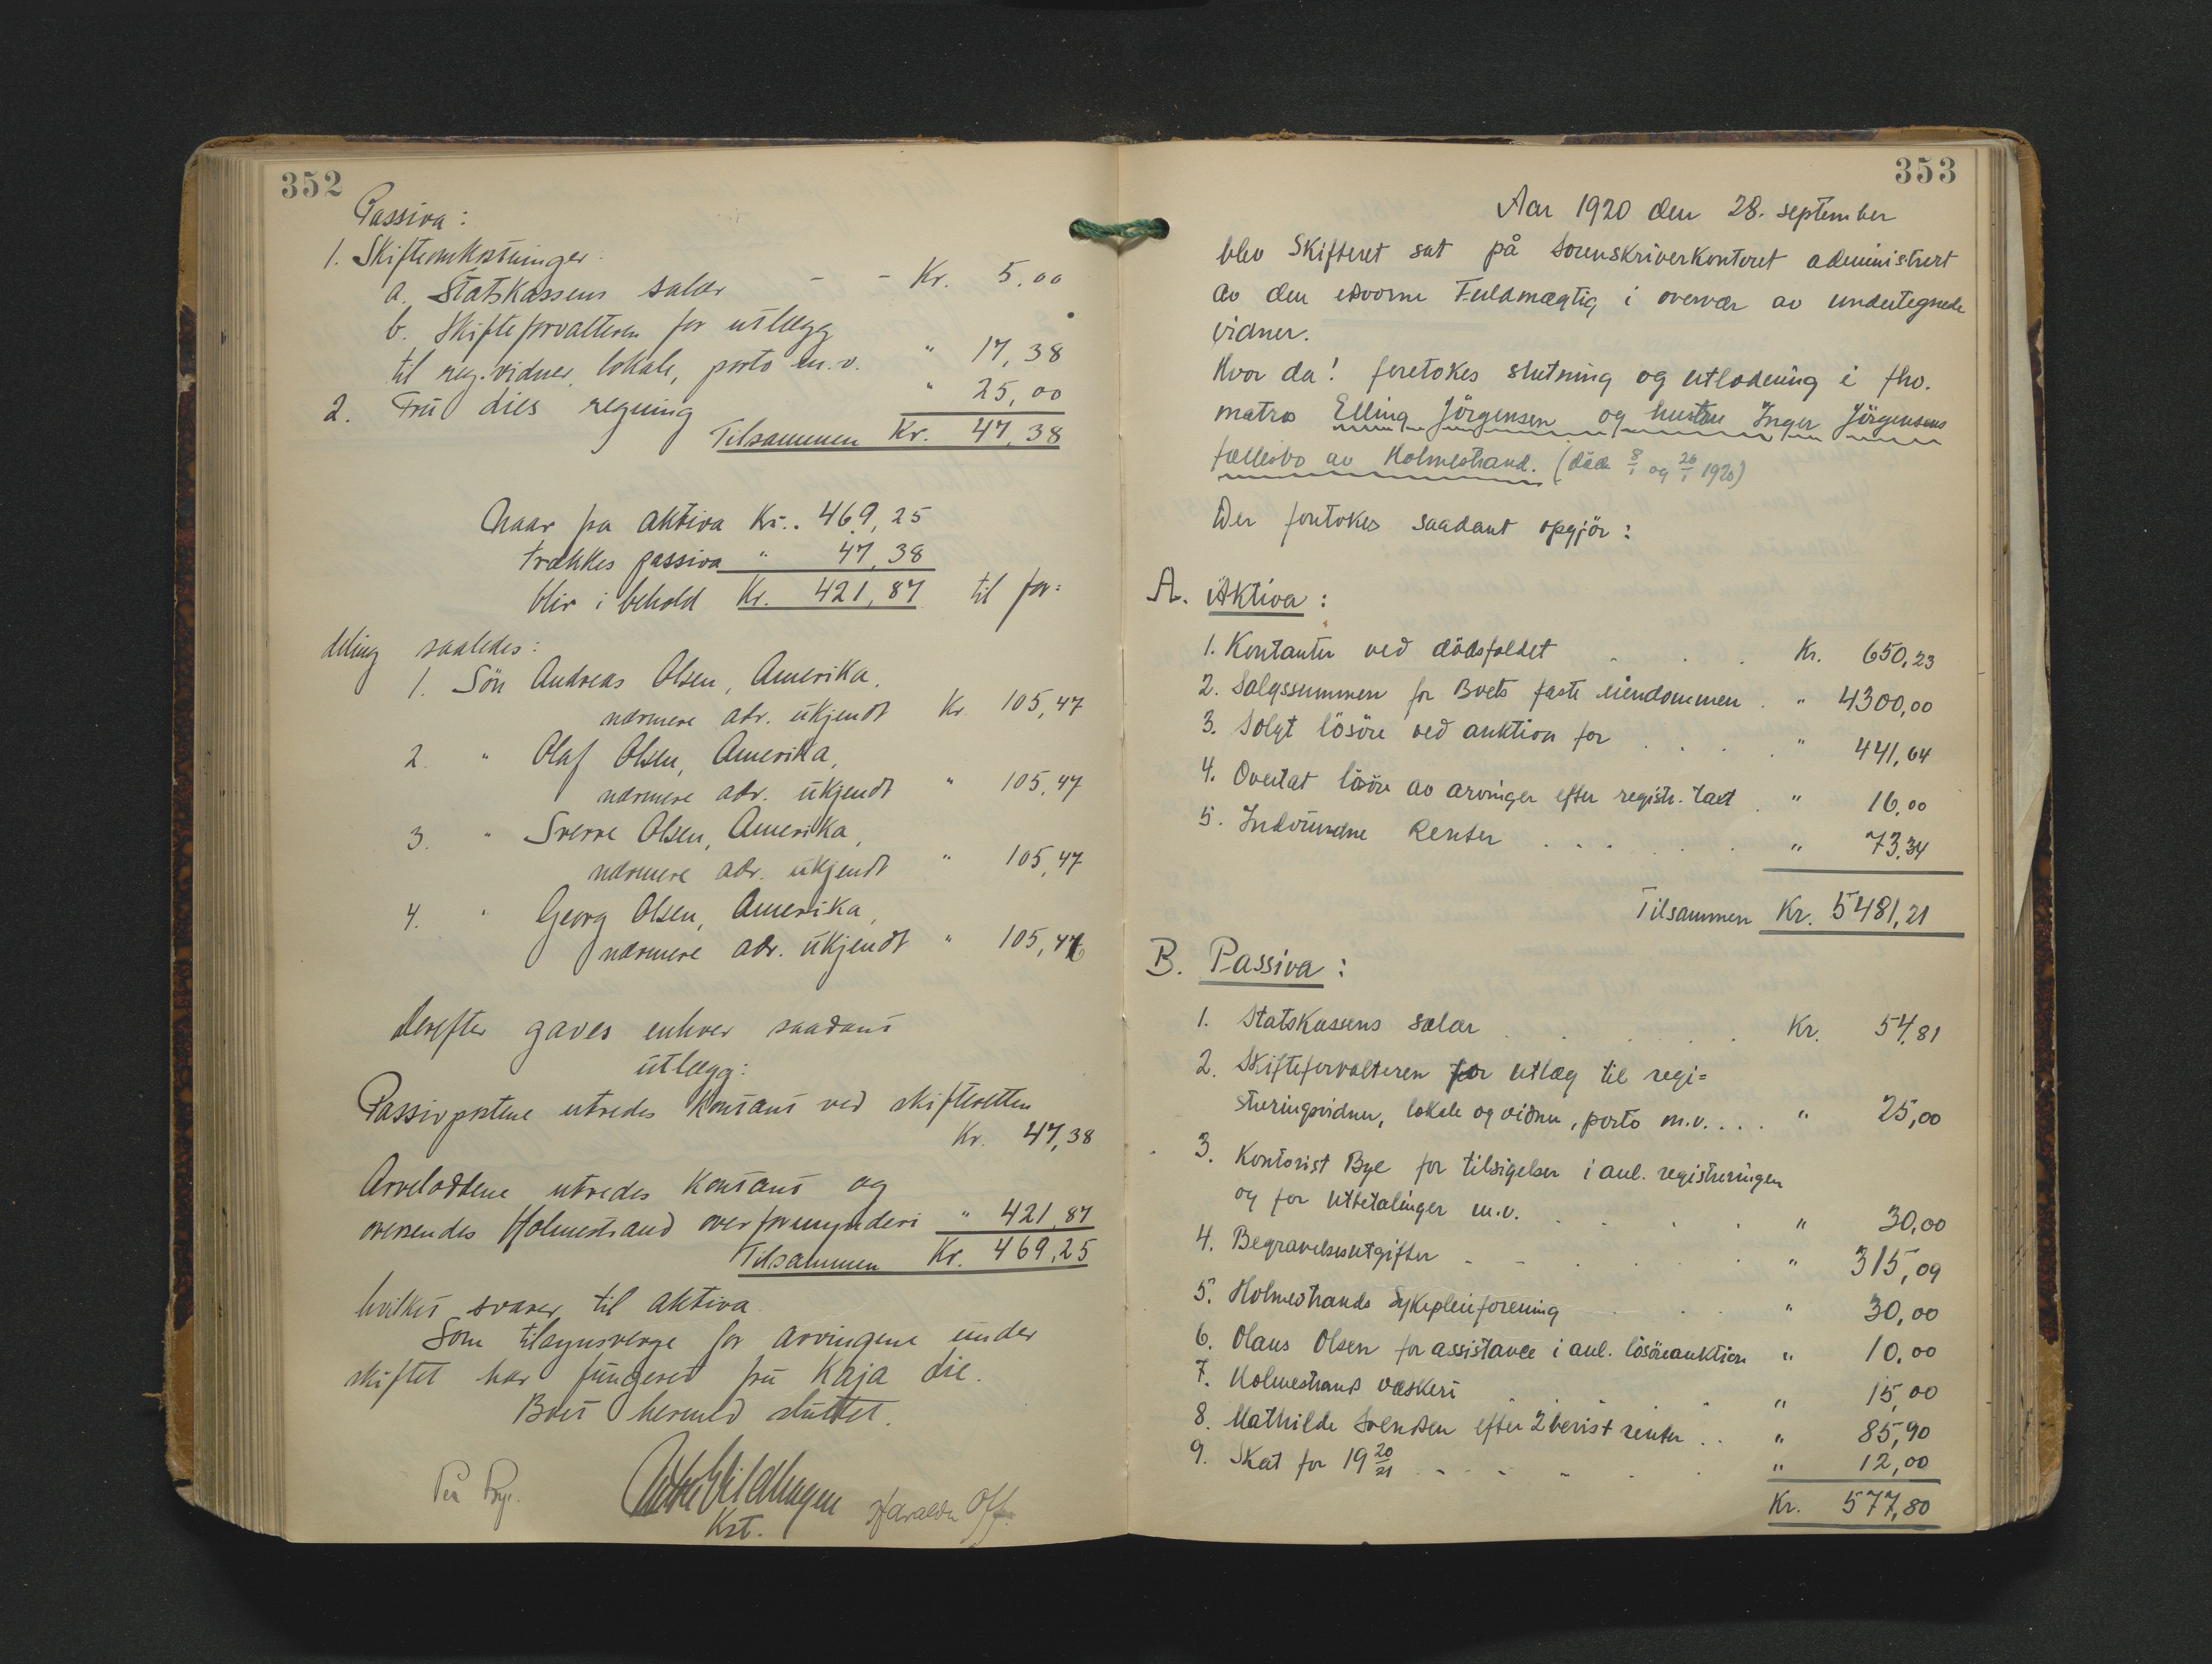 352
Passiva:
1. Skifteomkostninger:
a. Statskassens salær - - Kr. 5,00
b. Skifteforvalteren for utlægg
til reg.vidner, lokale, porto m.v. " 17,38
2. Fru Dies regning " 25,00
Tilsammen Kr. 47,38
Naar fra aktiva Kr. 469,25
trækkes passiva " 47,38
blir i behold Kr. 421,87 til for=
deling saaledes:
1. Sön Andreas Olsen, Amerika,
nærmere adr. ukjendt Kr. 105,47
2. " Olaf Olsen, Amerika,
nærmere adr. ukjendt " 105,47
3. " Sverre Olsen, Amerika,
nærmere adr. ukjendt " 105,47
4. " Georg Olsen, Amerika,
nærmere adr. ukjendt " 105,46
Derefter gaves enhver saadant
utlægg:
Passivpostene utredes kontant ved skifteretten
Kr. 47,38
Arveloddene utredes kontant og
oversendes Holmestrand overformynderi " 421,87
Tilsammen Kr. 469,25
hvilket svarer til aktiva.
Som tilsynsverge for arvingene under
skiftet har fungeret fru Kaja Die.
Boet hermed sluttet.
Per Bye.
Kst.
353
Aar 1920 den 28. september
blev Skifteret sat på Sorenskriverkontoret administrert
av den edsvorne Fuldmægtig i overvær av undertegnede
vidner.
Hvor da! foretokes slutning og utlodning i fhv.
matros Elling Jörgensen og hustru Inger Jörgensens
fællesbo av Holmestrand. (döde 8/1 og 26/1 1920)
Der foretokes saadant opgjör:
A. Aktiva:
1. Kontanter ved dödsfaldet . . . Kr. 650,23
2. Salgssummen for Boets faste eiendommen . " 4300,00
3. Solgt lösöre ved auktion for . . . . " 441,64
4. Overtat lösöre av arvinger efter registr. taxt . " 16,00
5. Indvundne Renter . . . . . " 73,34
Tilsammen Kr. 5481,21
B. Passiva:
1. Statskassens salær . . . . . Kr. 54,81
2. Skifteforvalteren for utlæg til regi=
streringsvidner, lokale og vidner, porto m.v. . . . " 25,00
3. Kontorist Bye for tilsigelser i anl. registreringen
og for utbetalinger m.v. . . . . " 30,00
4. Begravelsesutgifter - - . . . . " 315,09
5. Holmestrands Sykepleieforening . . . " 30,00
6. Olaus Olsen for assistance i anl. lösöreauktion " 10,00
7. Holmestrand væskeri . . . . " 15,00
8. Mathilde Svendsen efter 2 bevist renter . . " 85,90
9. Skat for 19 20/21 - - - - . . " 12,00
Kr. 577,80